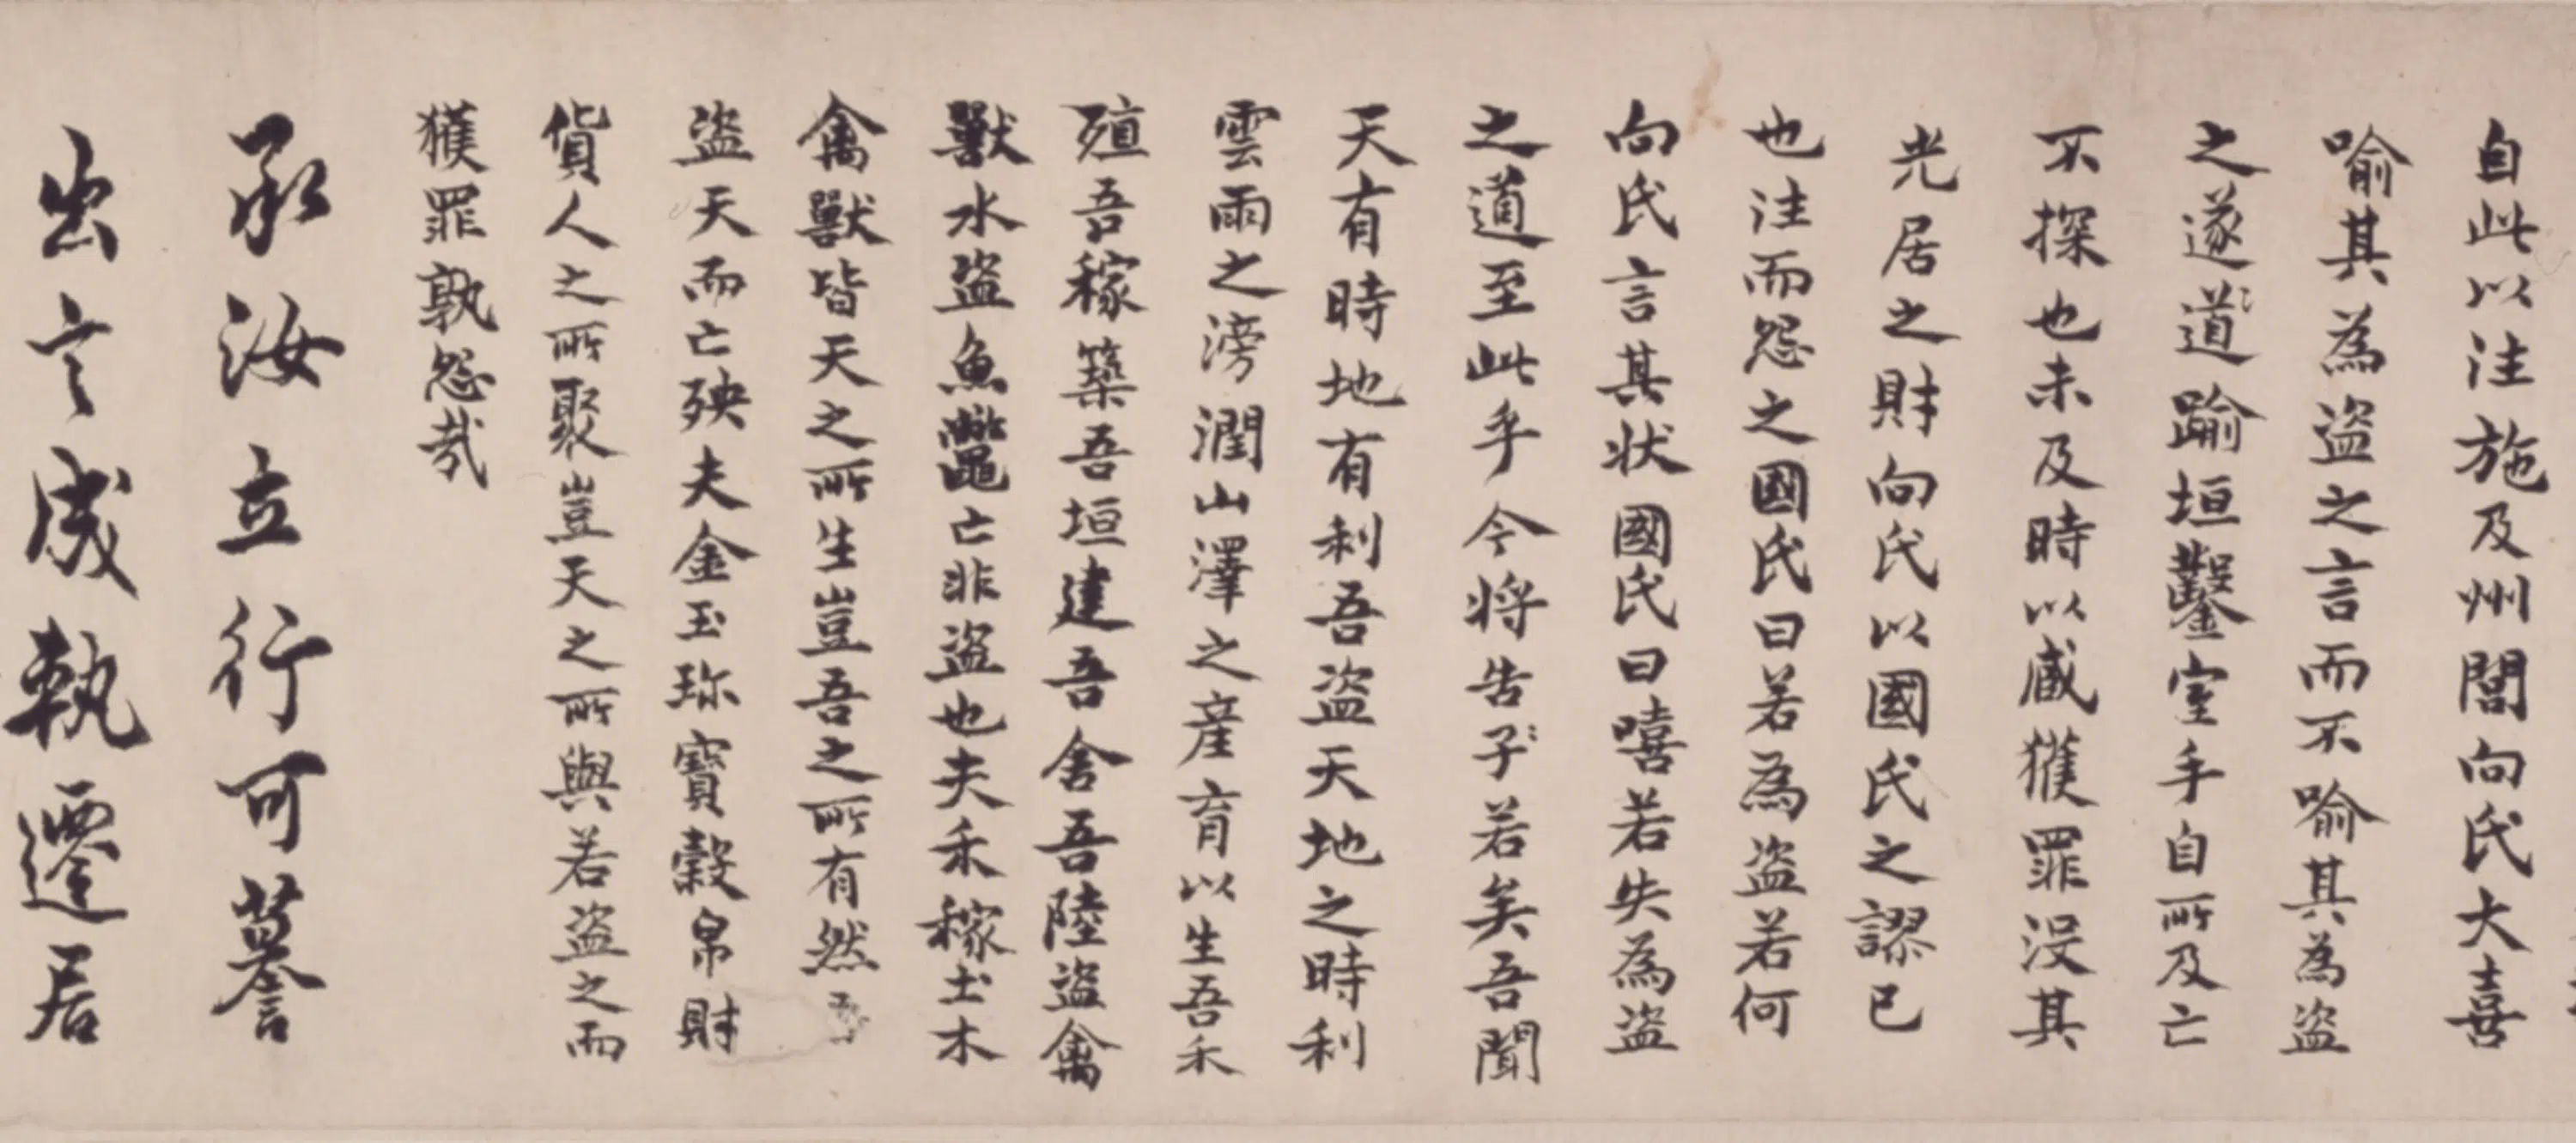 自此以往施及州閭向氏大喜
喻其為盗之言而不喻其為盗
之遂道踰垣鑿室手自所及亡
不探也未及時以臧獲罪没其
光居之財向氏以國氏之謬已
也往而怨之國氏曰若為盗若何
向氏言其状國氏曰嘻若失為盗
之道至此乎今将告子若矣吾聞
天有時地有利吾盗天地之時利
雲雨之滂潤山澤之産育以生吾禾
殖吾稼築吾垣建吾舎吾陸盗禽
獸水盗魚鼈亡非盗也夫禾稼土木
禽獸皆天之所生豈吾之所有然吾
盗天而亡殃夫金玉珎寳穀帛財
貨人之所聚豈天之所與若盗之而
獲罪孰怨哉
承汝立行可謩
出言成執遷居